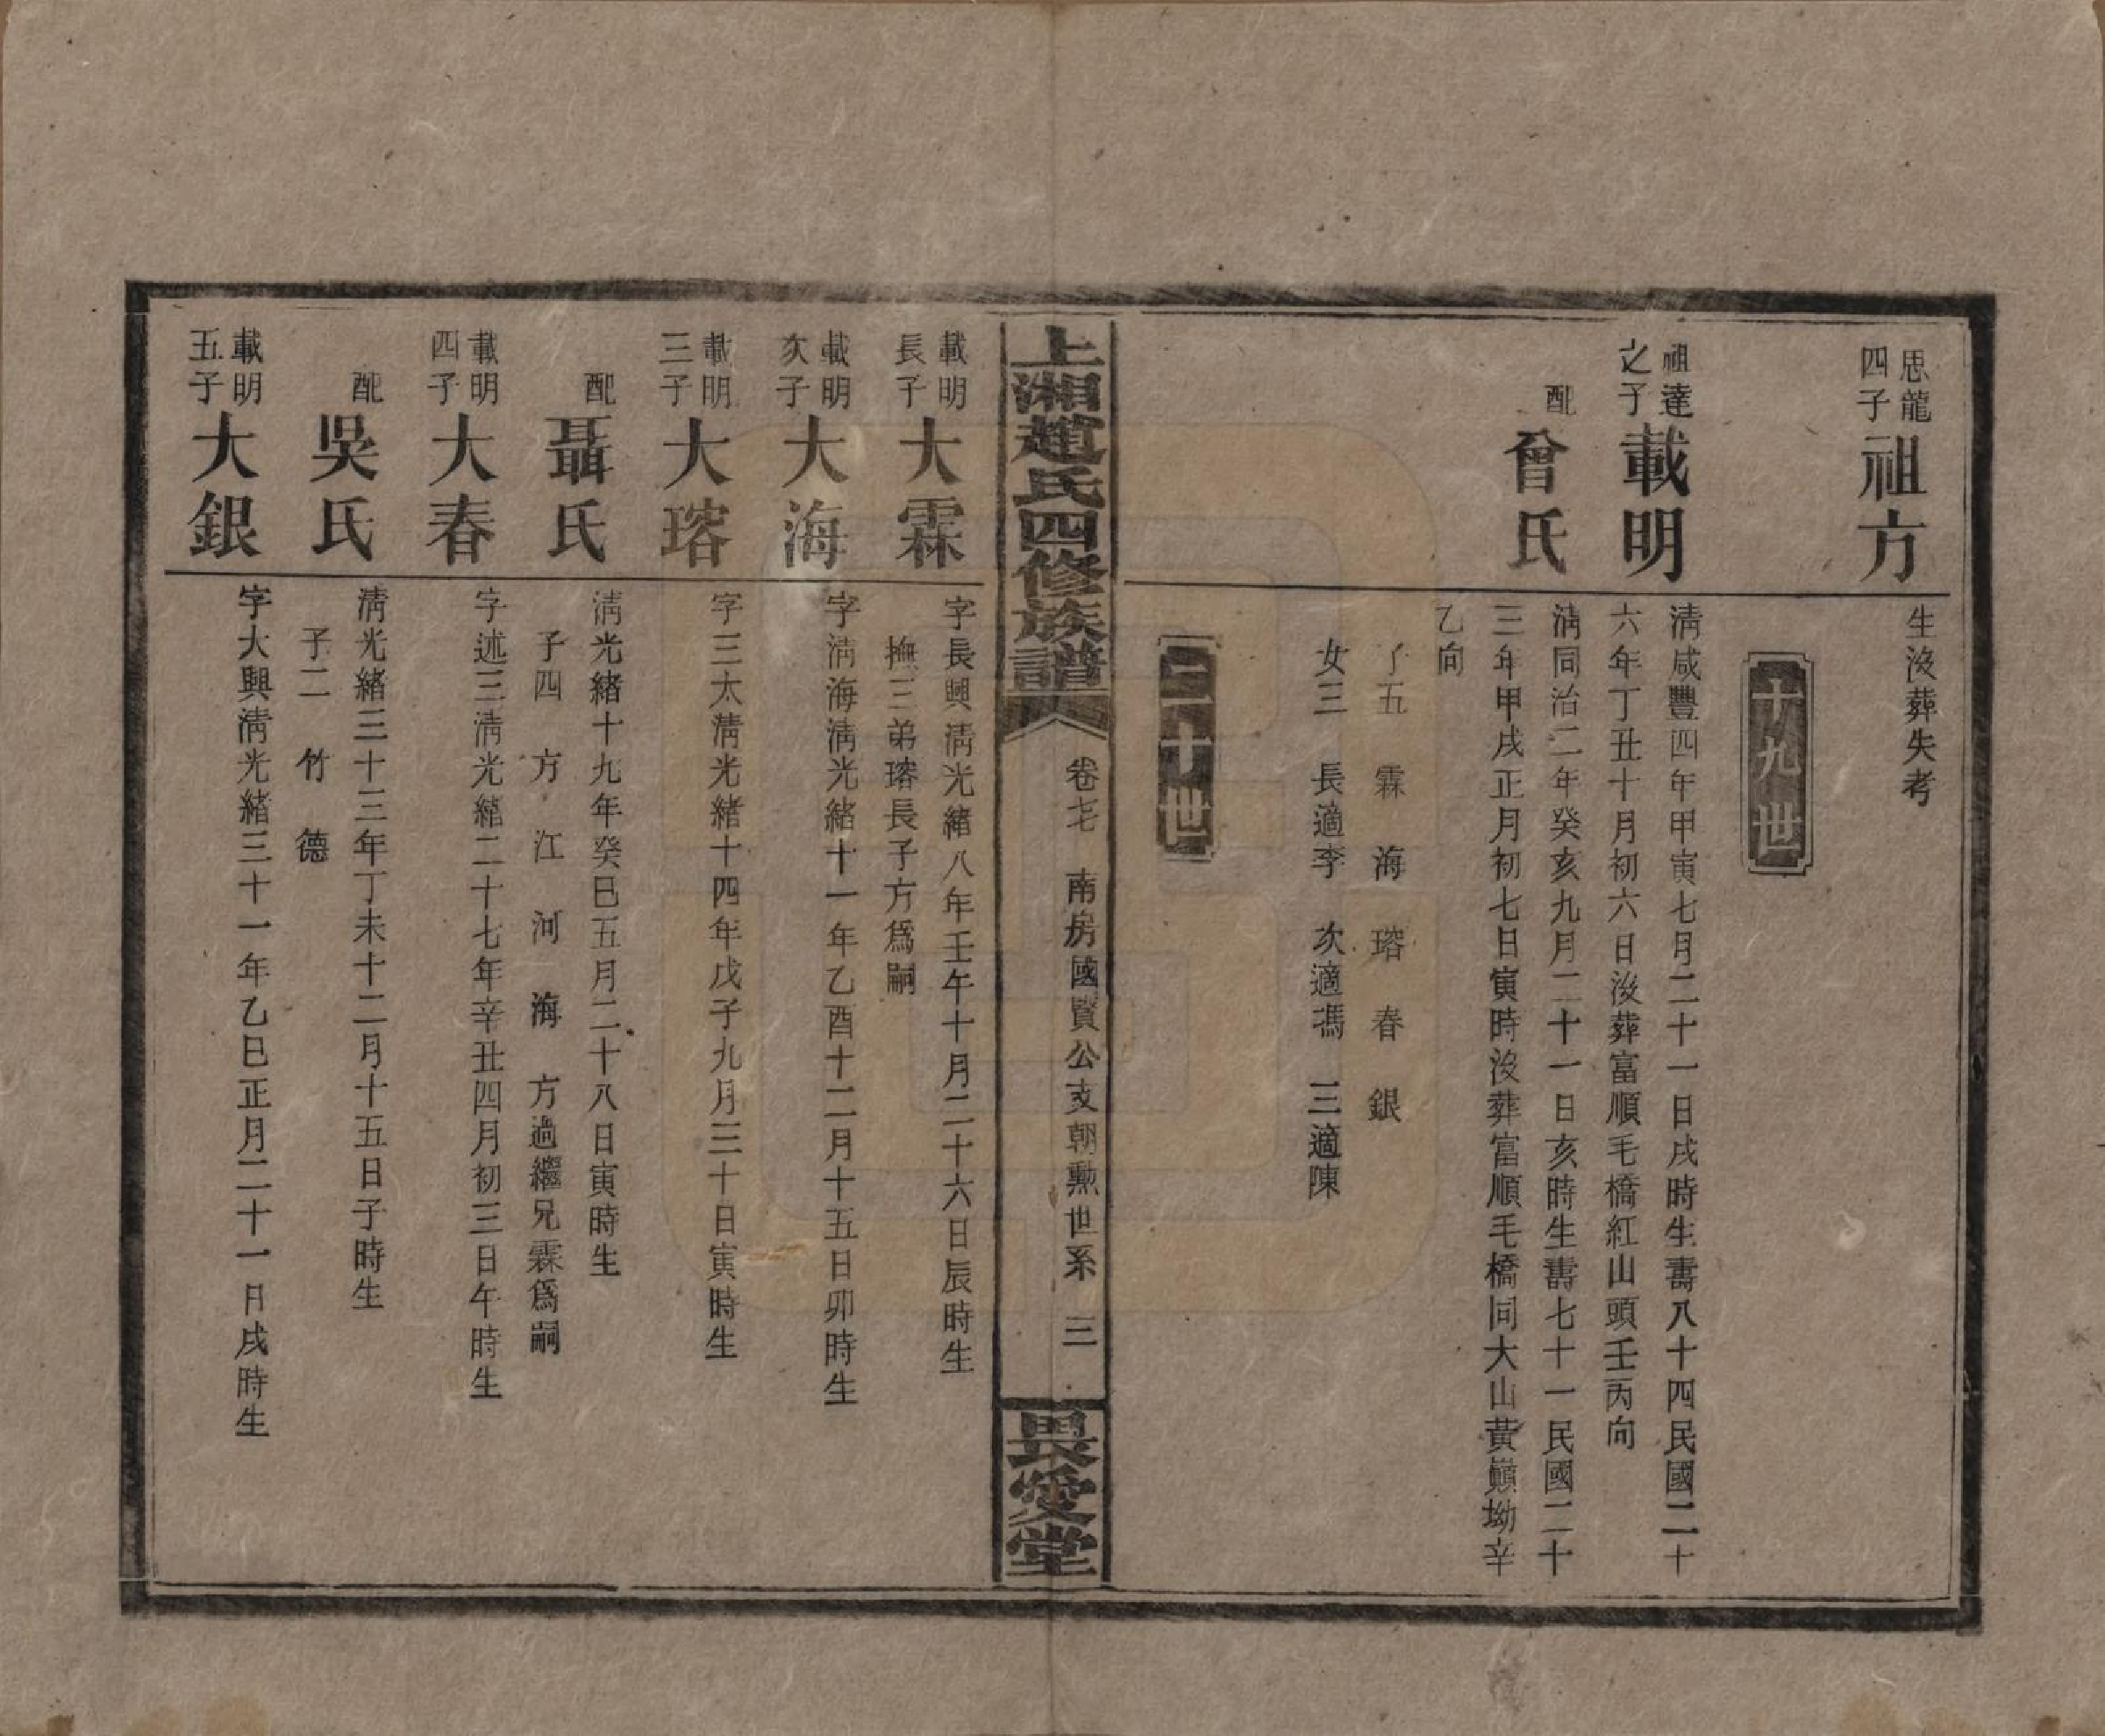 思龍
四子
祖方
生沒葬失考
十九世
祖達
之子
載明
清咸豐四年甲寅七月二十一日戌時生壽八十四民國二十
六年丁丑十月初六日沒葬富順毛橋紅山頭壬丙向
配
曾氏
清同治二年癸亥九月二十一日亥時生壽七十一民國二十
三年甲戌正月初七日寅時沒葬富順毛橋同大山黃巔坳辛
乙向
子五 霖 海 瑢 春 銀
女三 長適李 次適馮 三適陳
二十世
上湘趙氏四修族譜
卷七 南房國賢公支朝勲世系 三
畏愛堂
載明
長子
大霖
字長興清光緒八年壬午十月二十六日辰時生
撫三弟瑢長子方爲嗣
載明
次子
大海
字清海清光緒十一年乙酉十二月十五日卯時生
載明
三子
大瑢
字三太清光緒十四年戊子九月三十日寅時生
配
聶氏
清光緒十九年癸巳五月二十八日寅時生
子四 方 江 河 海 方過繼兄霖爲嗣
載明
四子
大春
字述三清光緒二十七年辛丑四月初三日午時生
配
吳氏
清光緒三十三年丁未十二月十五日子時生
子二 竹 德
載明
五子
大銀
字大興清光緒三十一年乙巳正月二十一日戌時生